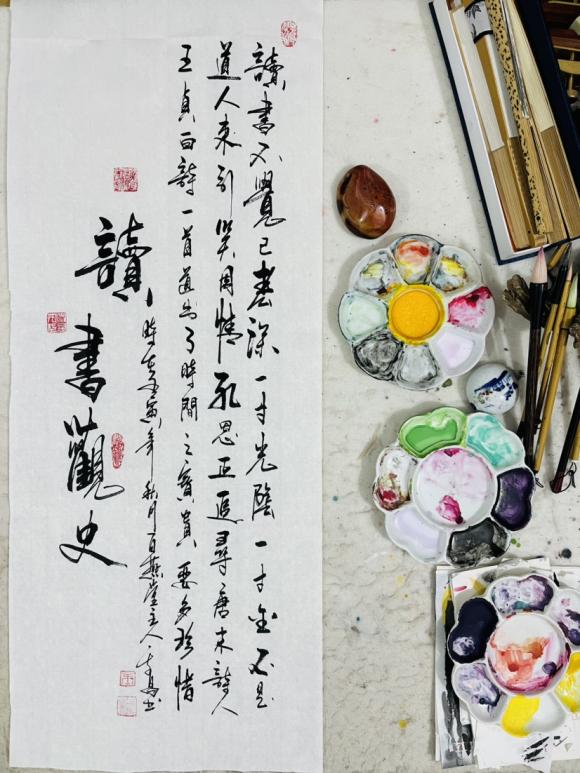 讀書不覺已春深一寸光陰一寸金不是
道人來引笑周情孔思正追尋唐末詩人
王貞白詩一首道出了時間之寶貴要多珍惜
讀書觀史
時在壬寅年秋月百燕堂主人